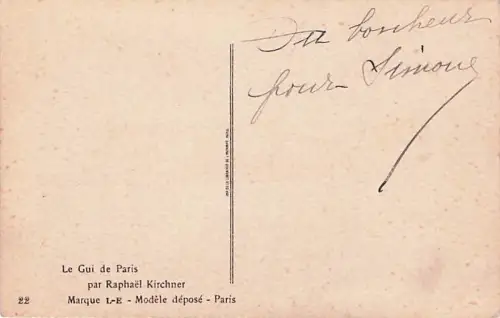 Du bonheur
pour Simone
Le Gui de Paris
par Raphaël Kirchner
22 Marque L-E - Modèle déposé - Paris